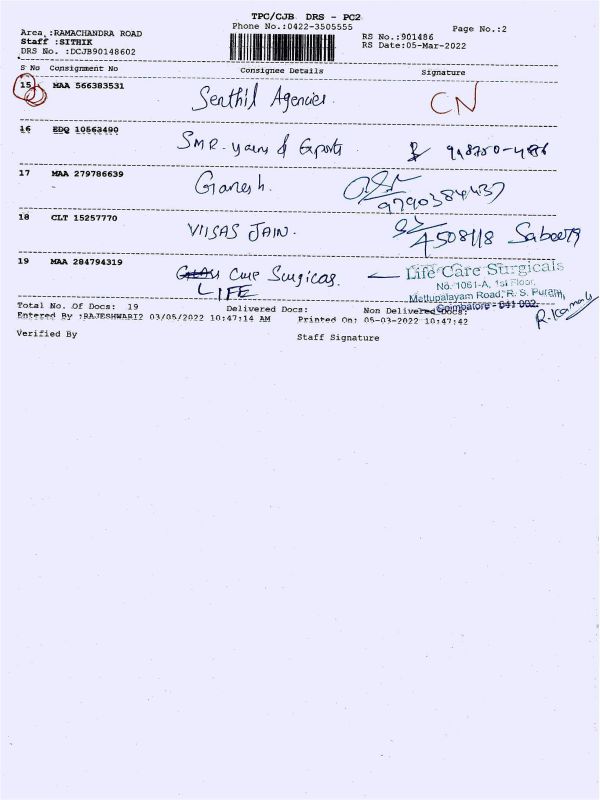 TPC/CJB DRS - PC2
Phone No.:0422-3505555
Page No.:2
Area :RAMACHANDRA ROAD
Staff :SITHIK
DRS No. :DCJB90148602
RS No.:901486
RS Date:05-Mar-2022
S No Consignment No Consignee Details Signature
15 MAA 566383531 Senthil Agencies CN
16 EDQ 10563490 SMR - yarns & Exports
17 MAA 279786639 Ganesh. 9790384437
18 CLT 15257770 VIISAS JAIN. 4508118
19 MAA 284794319 Care Surgicas.
LIFE
Life Care Surgicals
No. 1061-A, 1st Floor,
Mettupalayam Road, R. S. Puram,
Coimbatore - 641 002.
Total No. Of Docs: 19 Delivered Docs: Non Delivered Docs:
Entered By :RAJESHWARI2 03/05/2022 10:47:14 AM Printed On: 05-03-2022 10:47:42
Verified By Staff Signature